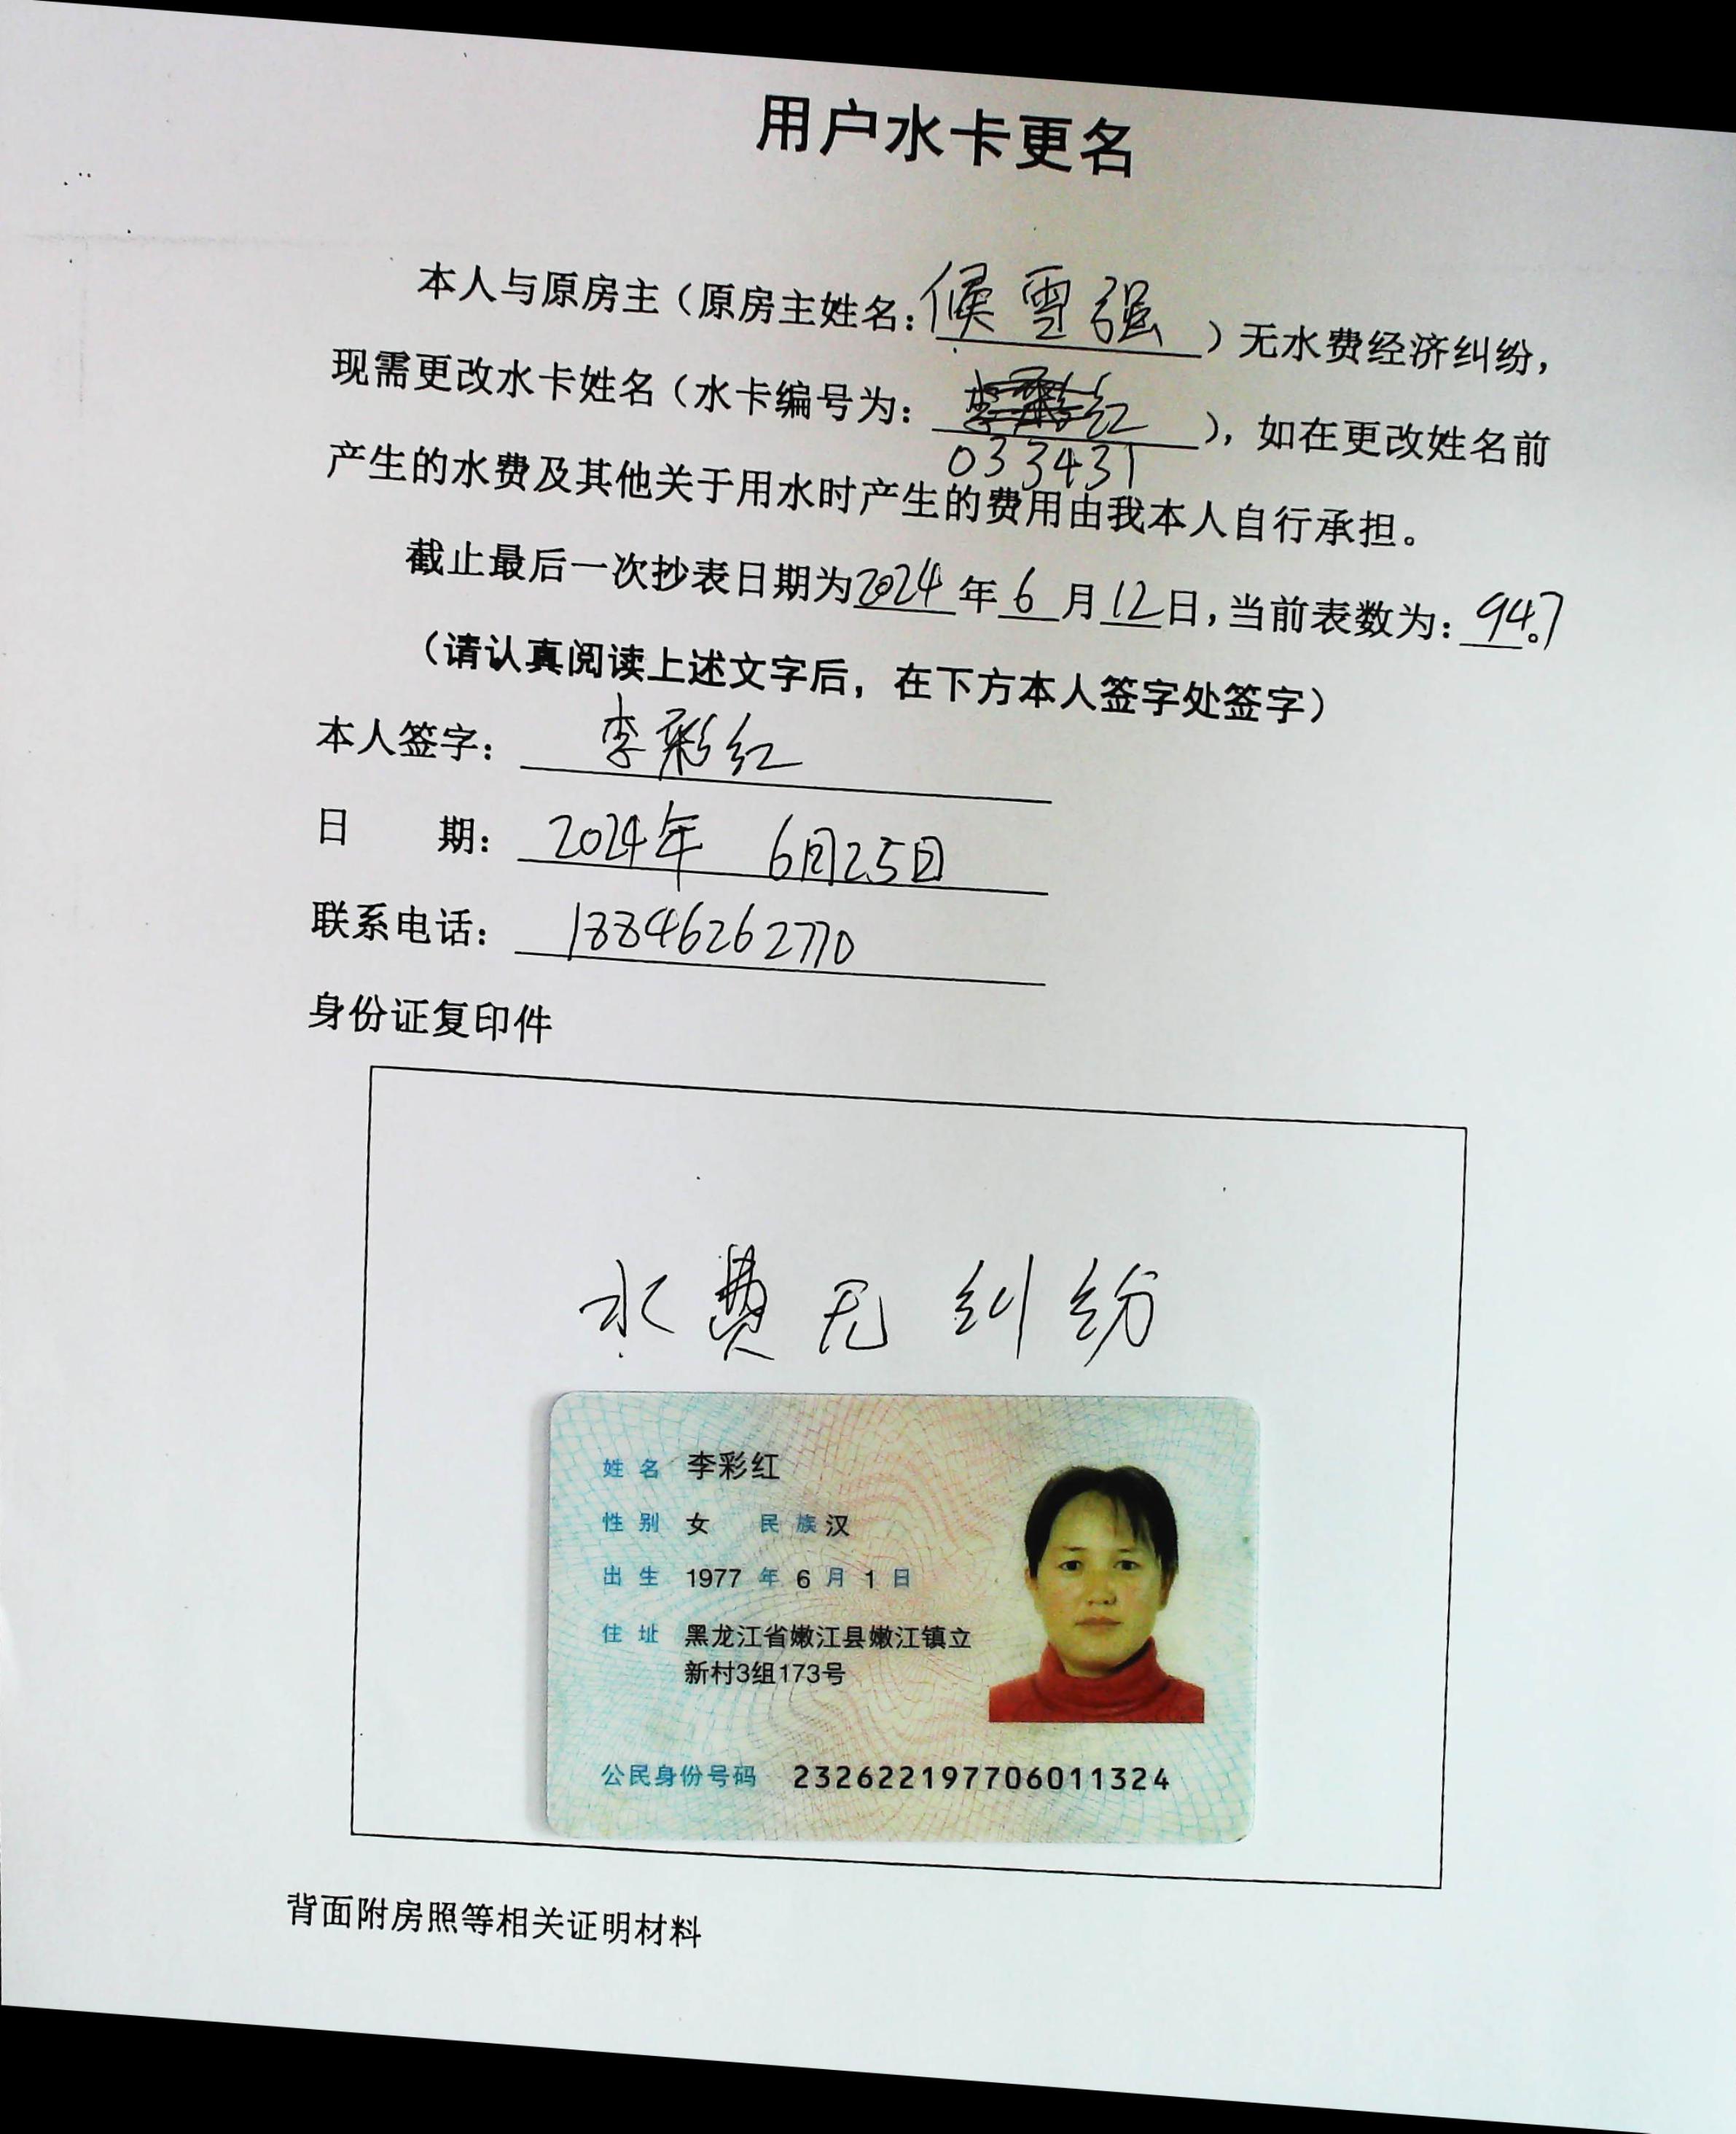 用户水卡更名
本人与原房主（原房主姓名：候雪强）无水费经济纠纷，
现需更改水卡姓名（水卡编号为：李彩红），如在更改姓名前
033431
产生的水费及其他关于用水时产生的费用由我本人自行承担。
截止最后一次抄表日期为2024年6月12日，当前表数为：94.7
（请认真阅读上述文字后，在下方本人签字处签字）
本人签字：李彩红
日 期：2024年 6月25日
联系电话：18846262770
身份证复印件
水费无纠纷
姓名 李彩红
性别 女 民族 汉
出生 1977年6月1日
住址 黑龙江省嫩江县嫩江镇立
新村3组173号
公民身份号码 232622197706011324
背面附房照等相关证明材料